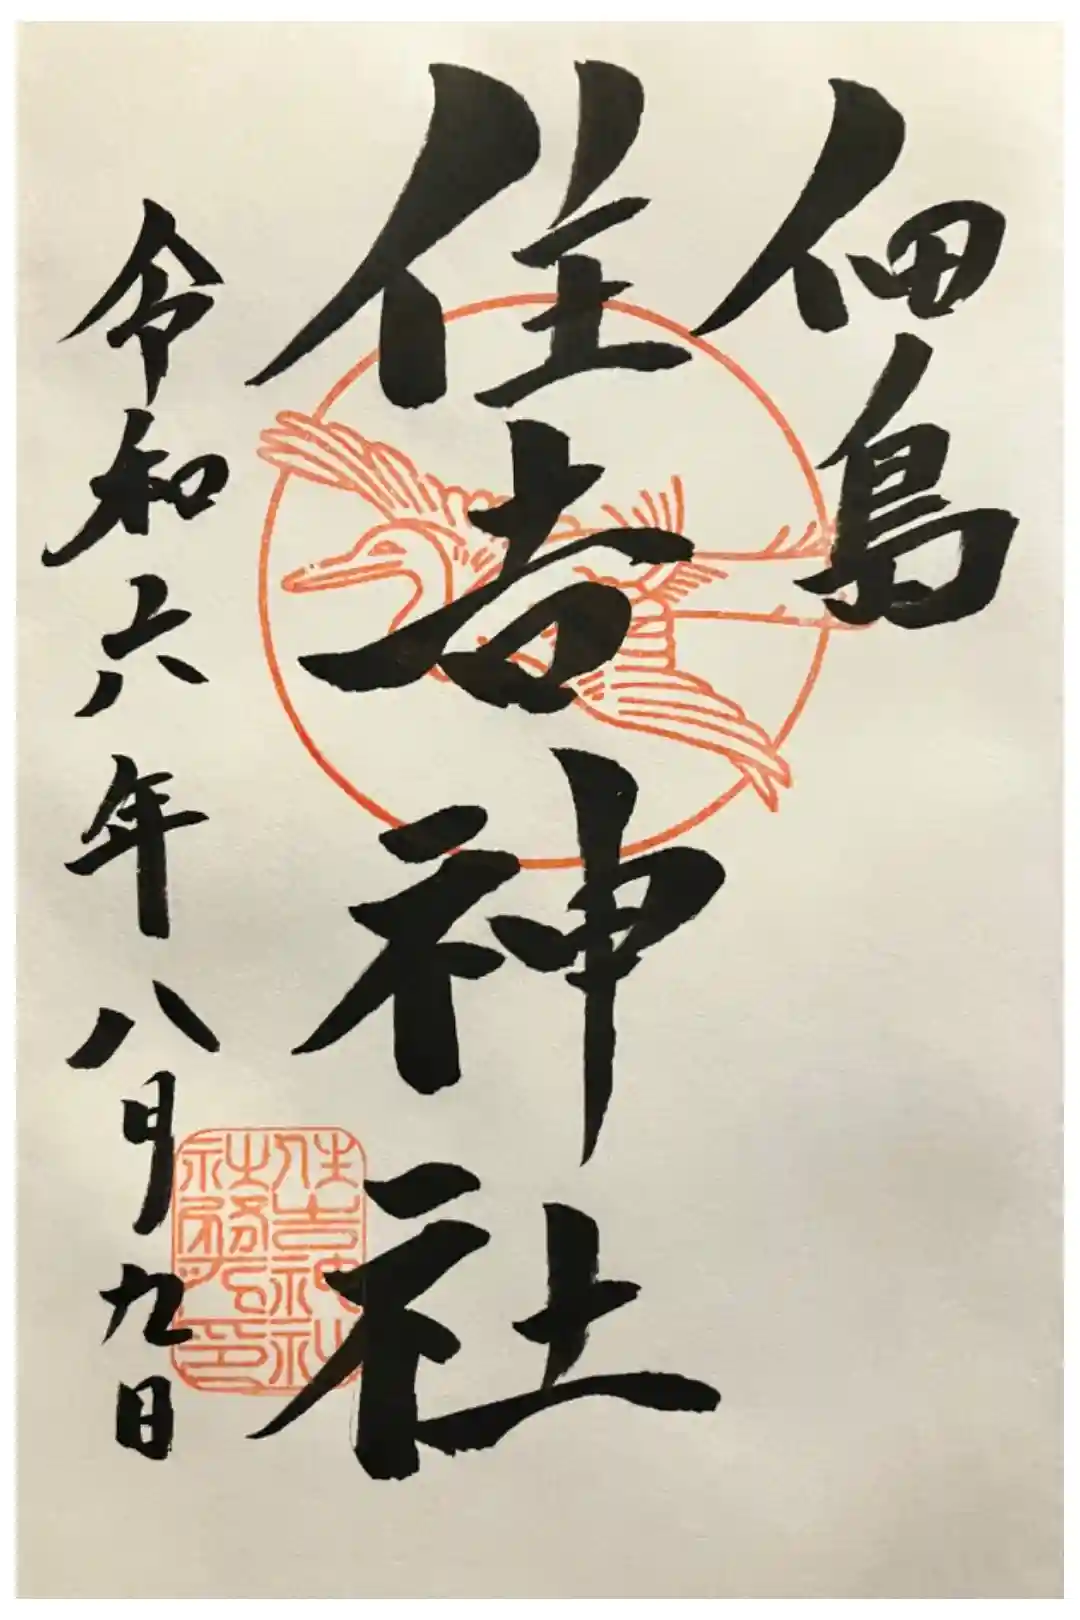 佃島
住吉神社
令和六年八月九日
住吉神社
社務所印